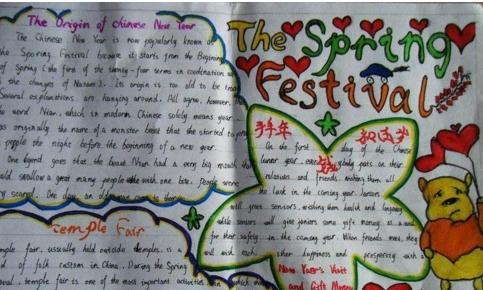 The Origin of Chinese New Year
The Chinese New Year is now popularly known as
the Sporing Festival because it starts from the Beginning
of Spring (the first of the twenty-four terms in coordination w
the changes of Nature). Its origin is too old to be traced
Several explanations are hanging around. All agree, however, th
word Nian, which in modern Chinese solely means year,
as originally the name of a monster beast that started to
people the night before the beginning of a new year.
One legend goes that the beast Nian had a very big mouth th
swallow a great many people with one bite. People were
scared. One day, an old man came
Temple Fair
mple fair, usually held outside temples, is a
of folk custom in China. During the Spring
temple fair is one of the most important activities in which
The Spring
Festival
On the first day of the Chinese
lunar year, everybody pays on their
relatives and friends, wishing them all
the luck in the coming year. Juniors
will greet seniors, wishing them health and longevity
while seniors will give juniors some gift money as a wish
for their safety in the coming year. When friends meet, they
will wish each other happiness and prosperity with
New Year's Visit
and Gift Money